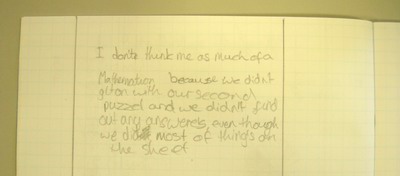 I don't think me as much of a
Mathemation because we didn't
giton with our second
puzzel and we didn't find
out any answers even though
we did most of things on
the sheet